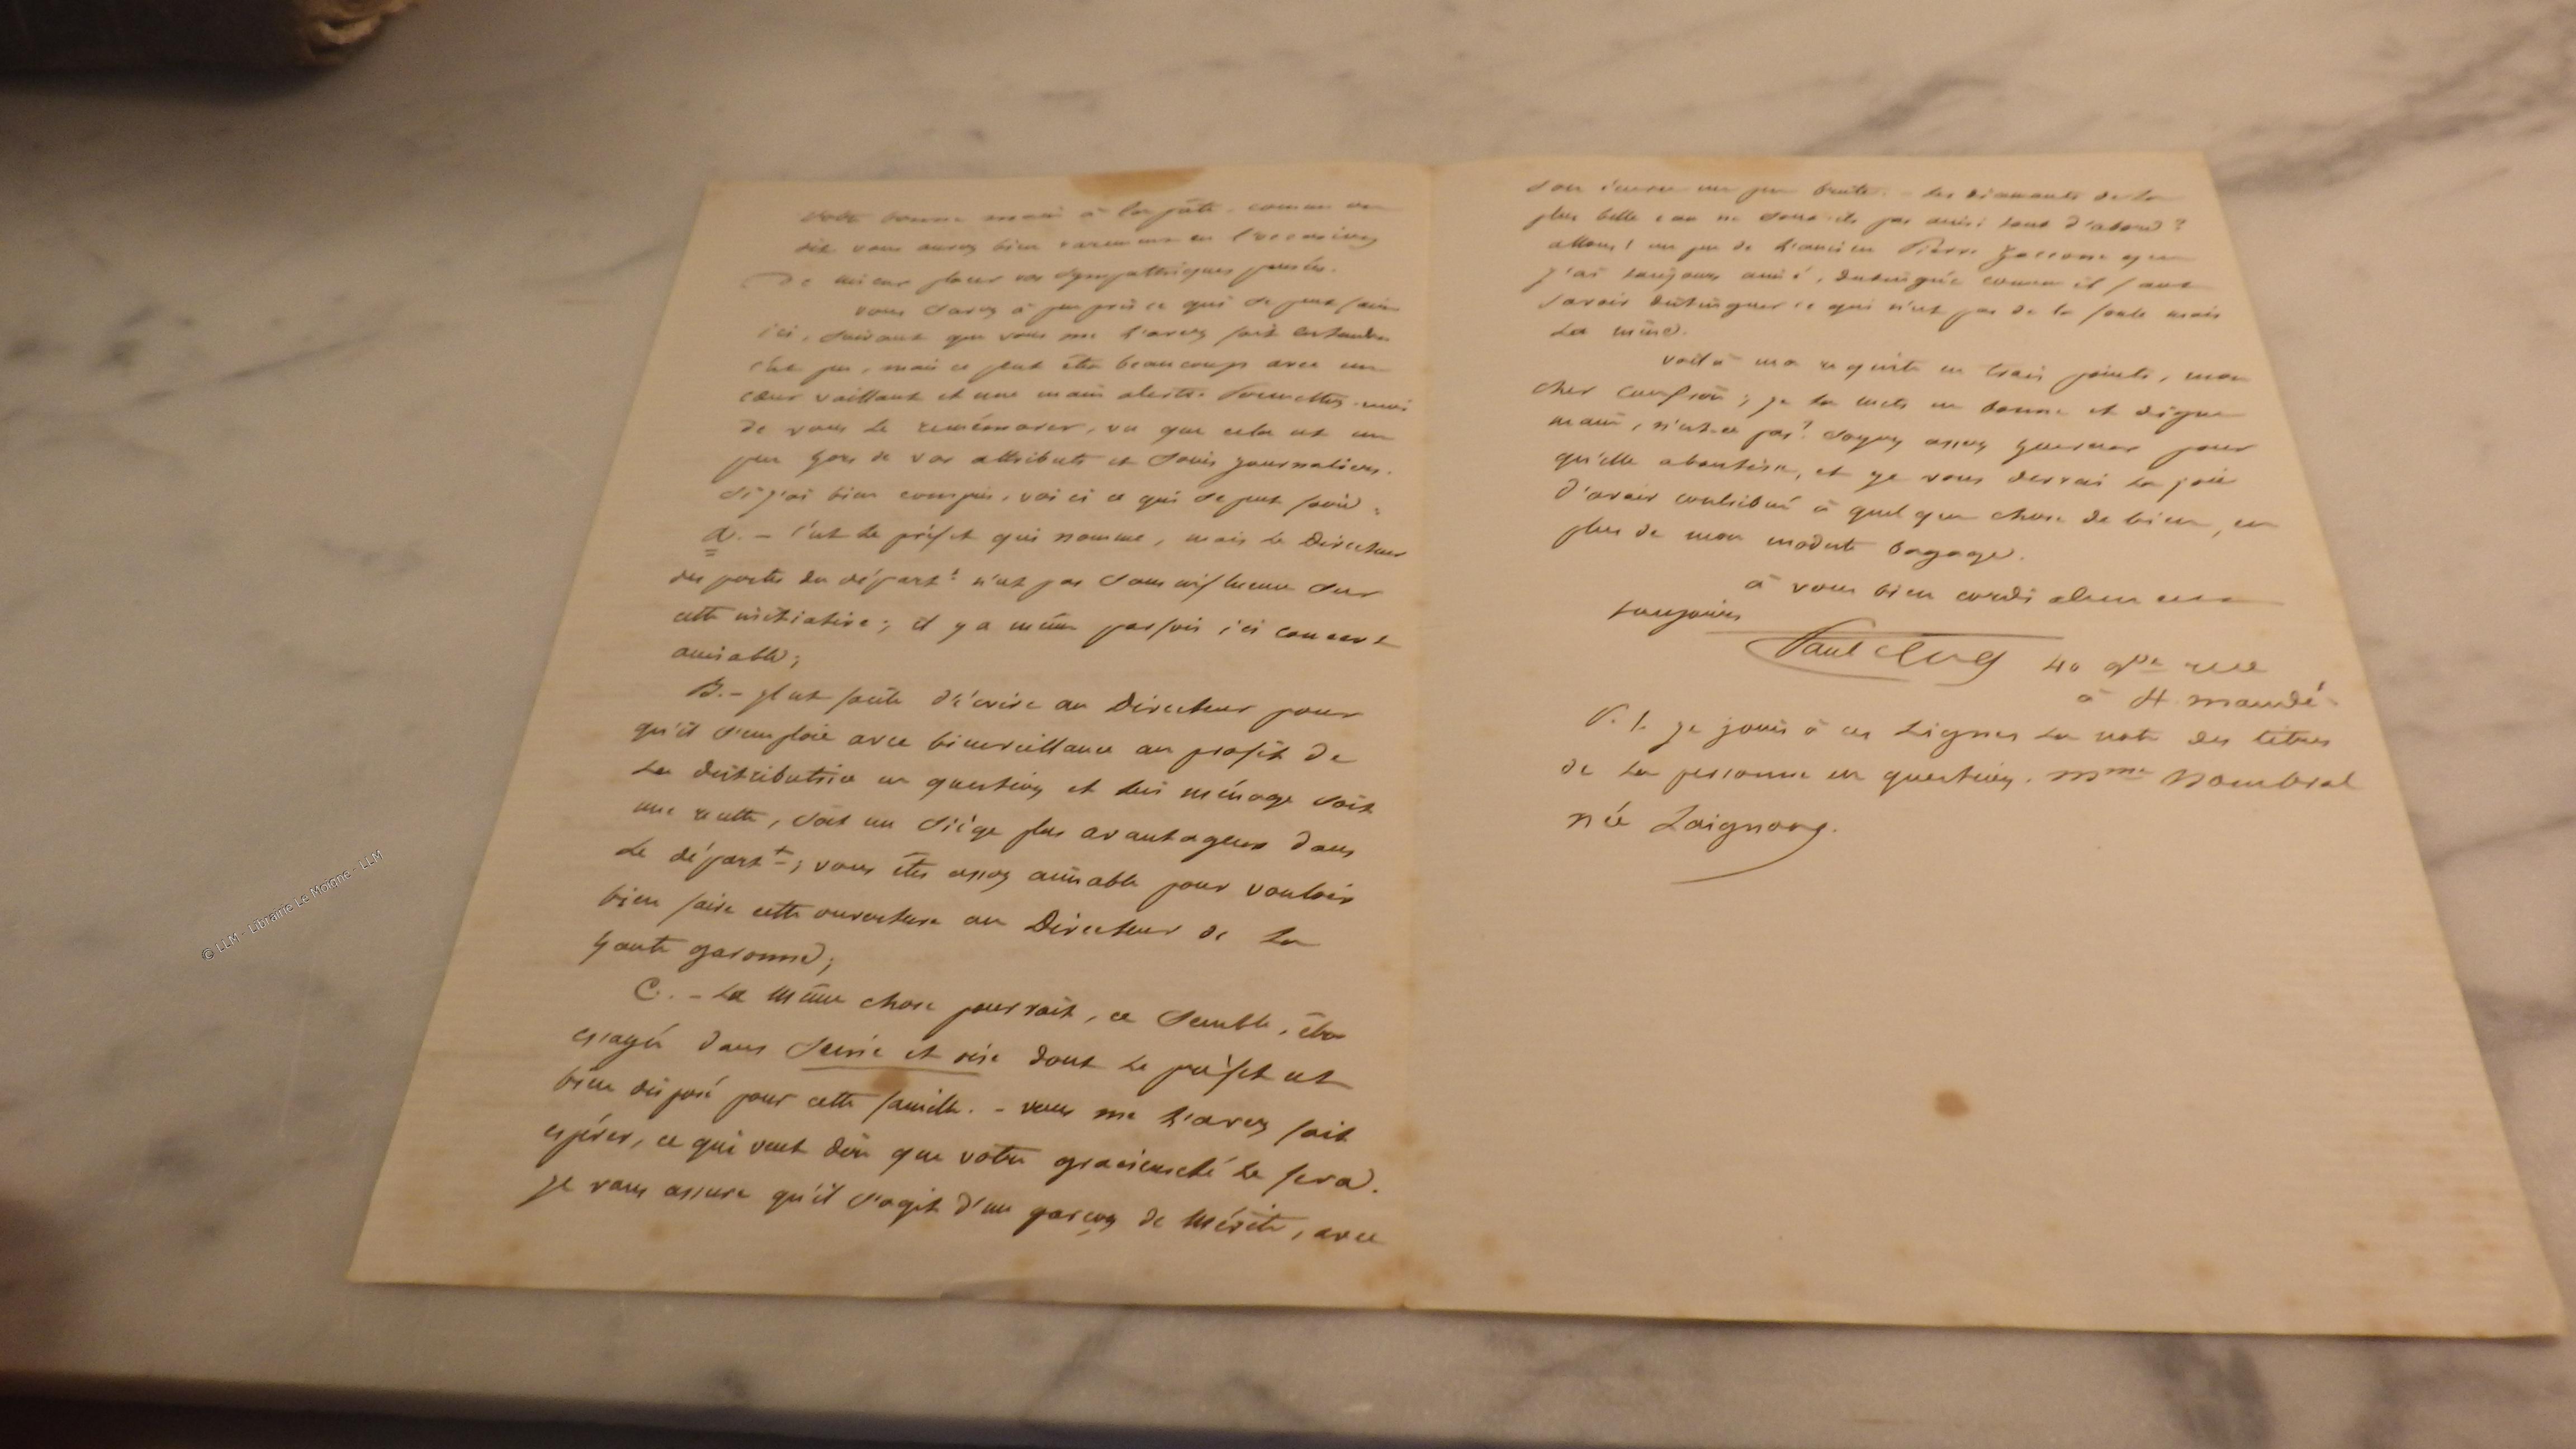 votre bonne main à la pâte. comme on
dit vous aurez bien rarement eu l'occasion
De mieux placer vos sympathiques pensées.
vous savez à peu près ce qui se peut faire
ici, suivant que vous me l'avez fait entendre
c'est peu, mais ce peut être beaucoup avec un
cœur vaillant et une main alerte. Permettez-moi
de vous le remémorer, vu que cela est un
peu hors de vos attributs et soucis journaliers.
si j'ai bien compris, voici ce qui se peut faire :
a. – c'est le préfet qui nomme, mais le Directeur
des postes du départt n'est pas sans influence sur
cette initiative ; il y a même parfois ici concert
amiable ;
B. – il est facile d'écrire au Directeur pour
qu'il s'emploie avec bienveillance au profit de
la distributrice en question et lui ménage soit
une recette, soit un siège plus avantageux dans
le départt ; vous êtes assez aimable pour vouloir
bien faire cette ouverture au Directeur de la
haute garonne ;
C. – La même chose pourrait, ce semble, être
essayée dans Seine et oise dont le préfet est
bien disposé pour cette famille. – vous me l'avez fait
espérer, ce qui veut dire que votre gracieuseté le fera.
je vous assure qu'il s'agit d'un garçon de mérite, avec
son écorce un peu brute. – les diamants de la
plus belle eau ne sont-ils pas ainsi tout d'abord ?
allons ! un peu de l'ancien Pierre que
j'ai toujours aimé, distingué comme il faut
savoir distinguer ce qui n'est pas de la foule mais
La mine.
voilà ma requête en trois points, mon
cher confrère ; je la mets en bonne et digne
main, n'est-ce pas ? soyez assez généreux pour
qu'elle aboutisse, et je vous devrai la joie
d'avoir contribué à quelque chose de bien, en
plus de mon modeste bagage.
à vous bien cordialement
toujours
Paul 40 gde rue
à St mandé.
P.S. je joins à ces Lignes la note des titres
de la personne en question. Mme
née
© LLM - Librairie Le Moigne - LLM